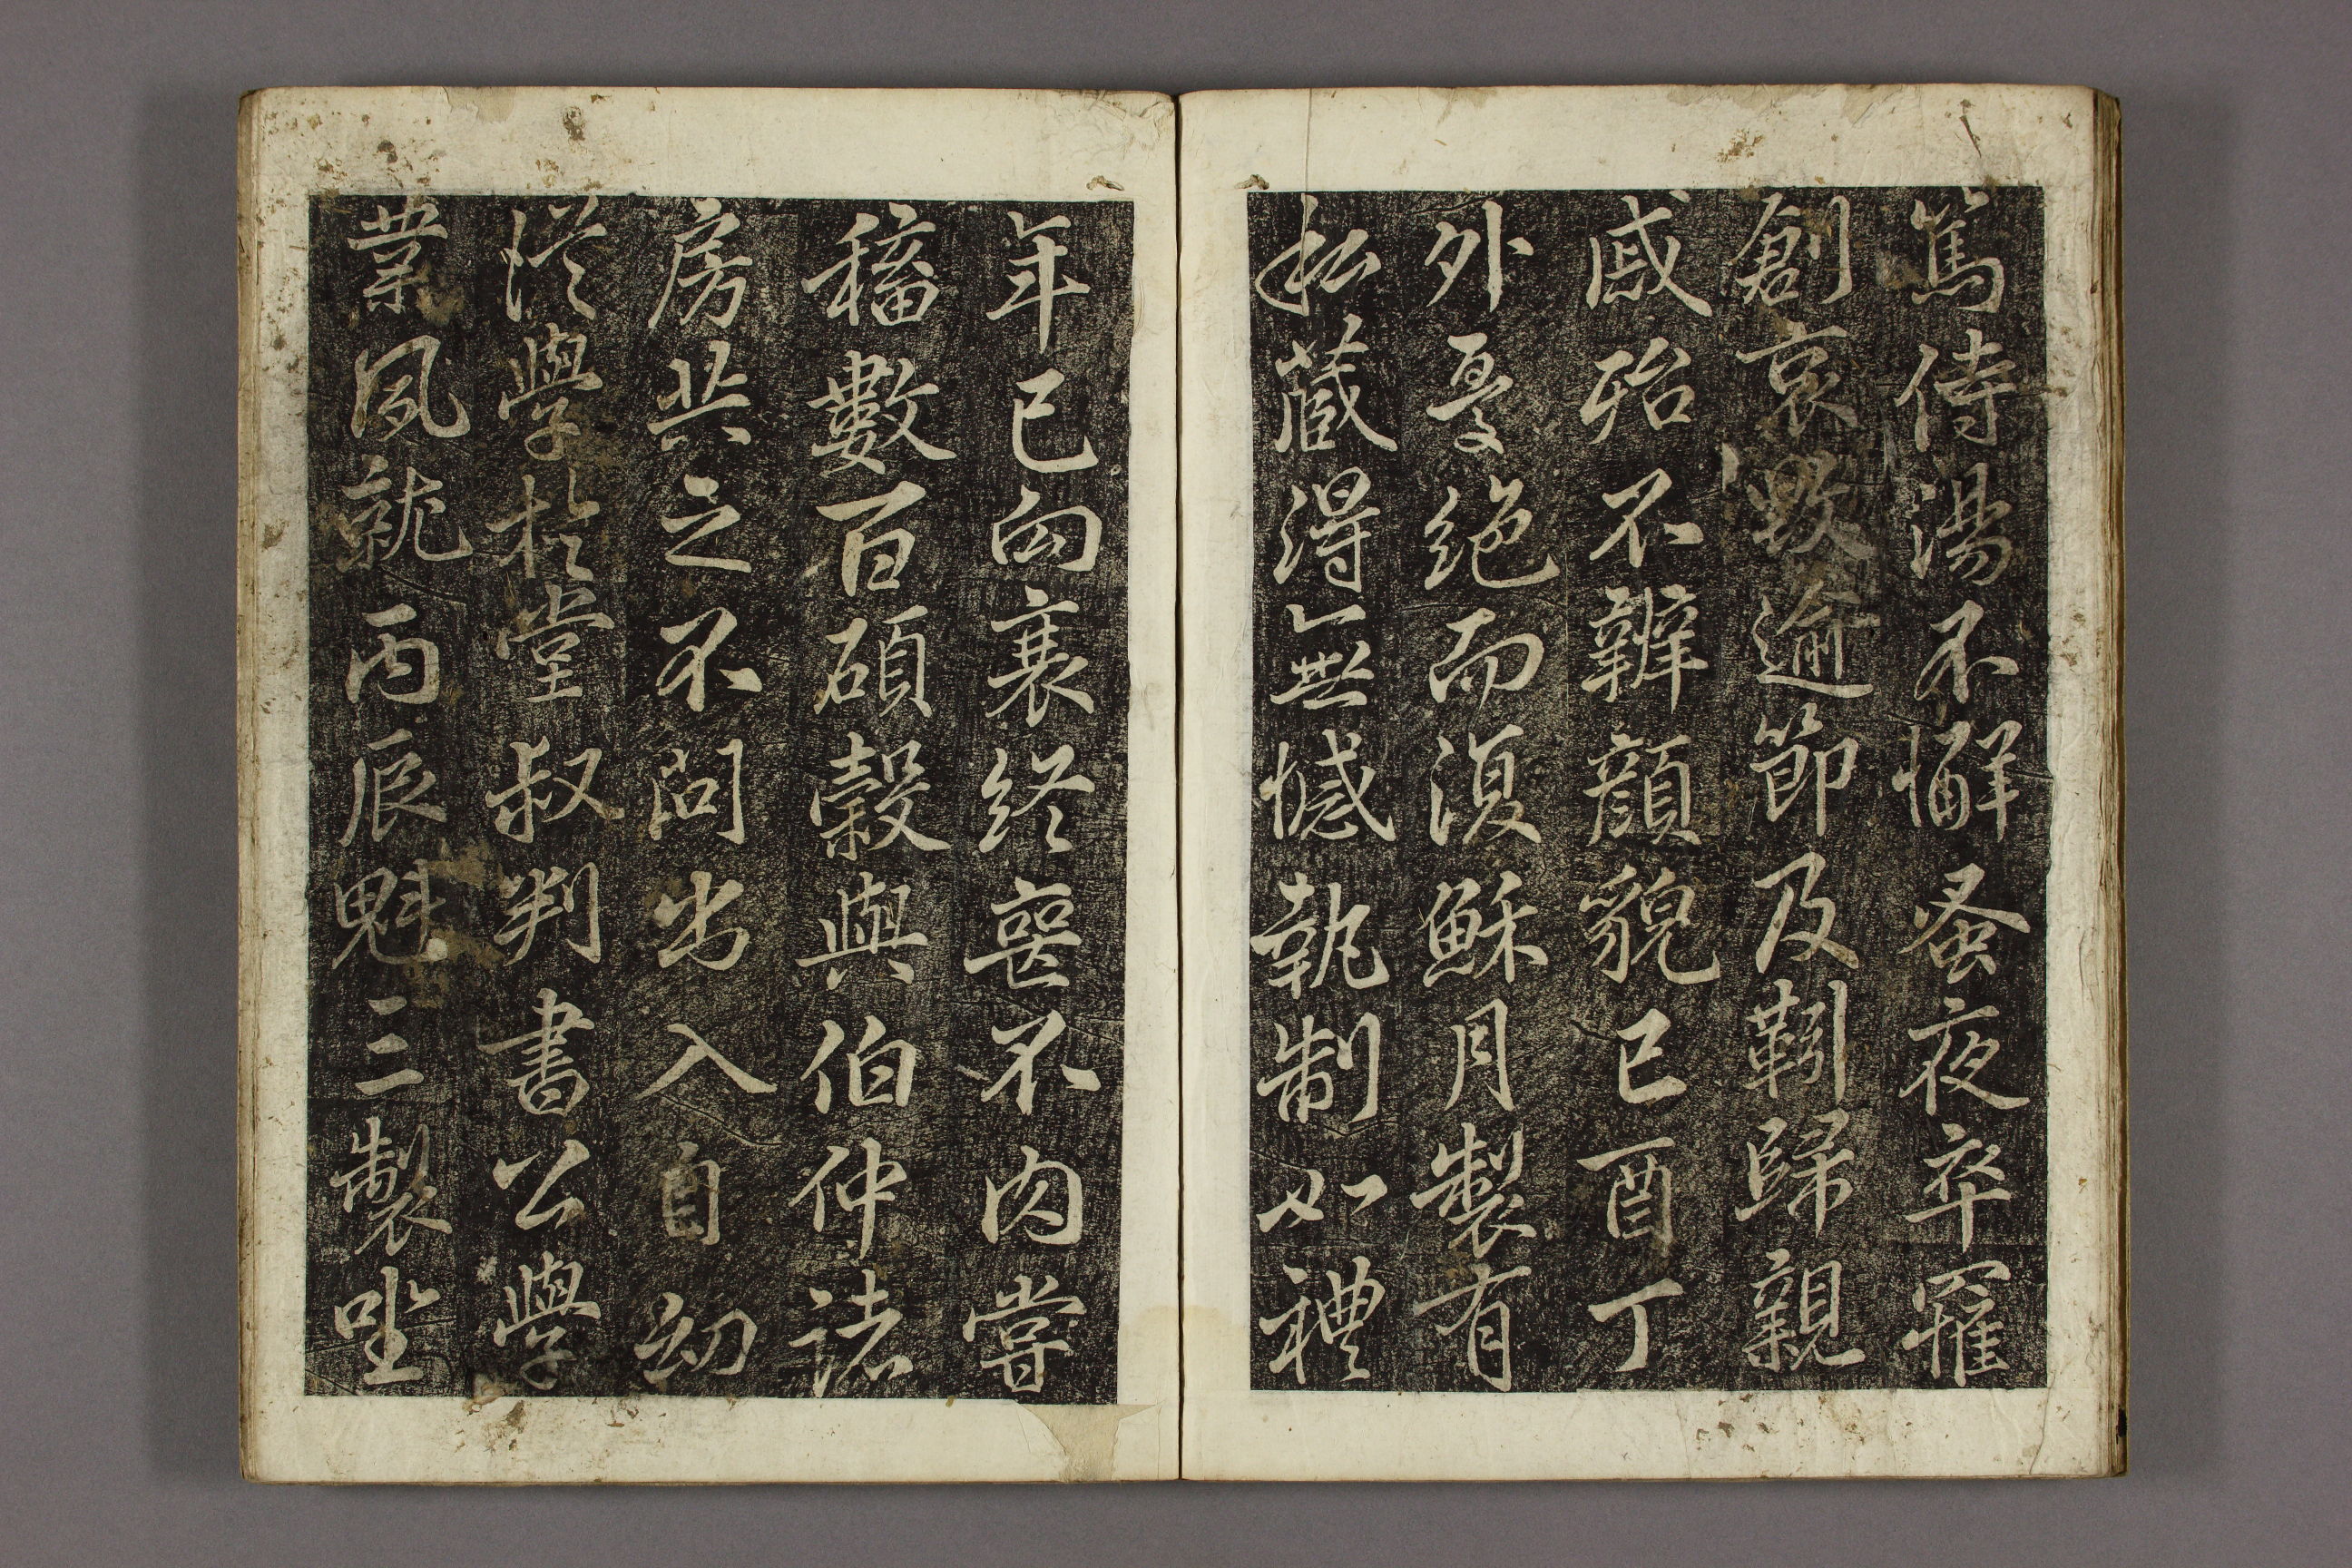 篤侍湯不懈蚤夜卒罹
創哀毀逾節及鞠歸親
戚殆不辨顏貌已酉丁
外憂絶而復穌月製有
私藏得無憾執制如禮
年已向衰終喪不内嘗
穡數百碩穀與伯仲諸
房共之不問出入自幼
從學於堂叔判書公學
業夙就丙辰魁三製坐